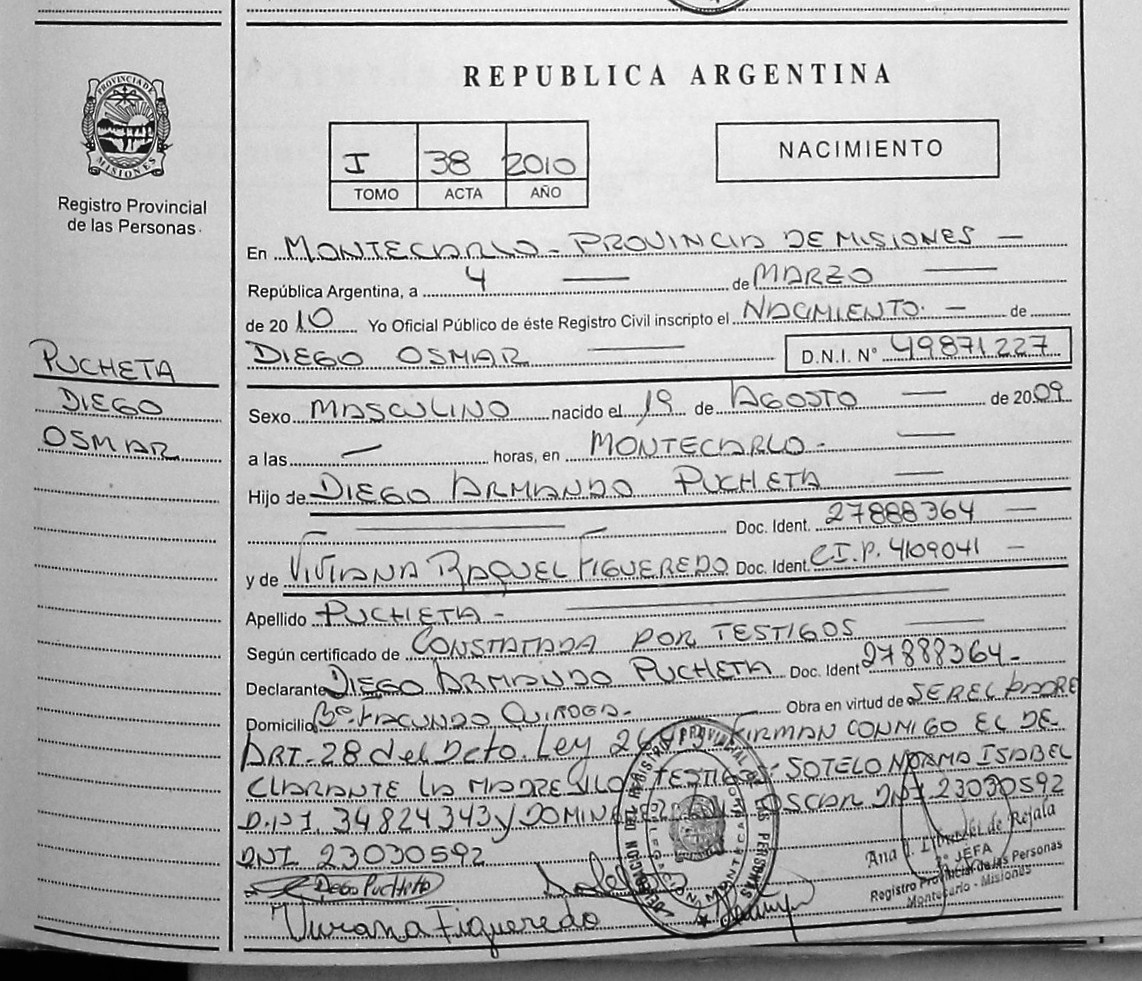 PROVINCIA DE
MISIONES
Registro Provincial
de las Personas
PUCHETA
DIEGO
OSMAR
REPUBLICA ARGENTINA
I 38 2010
TOMO ACTA AÑO
NACIMIENTO
En MONTECARLO - PROVINCIA DE MISIONES —
República Argentina, a 4 — de MARZO —
de 2010 Yo Oficial Público de éste Registro Civil inscripto el NACIMIENTO. — de
DIEGO OSMAR — D.N.I. N° 49871227
Sexo MASCULINO nacido el 19 de AGOSTO — de 2009
a las — horas, en MONTECARLO - —
Hijo de DIEGO ARMANDO PUCHETA —
— Doc. Ident. 27888364 —
y de VIVIANA RAQUEL FIGUEREDO Doc. Ident. C.I.P. 4109041 —
Apellido PUCHETA - —
Según certificado de CONSTATADA POR TESTIGOS —
Declarante DIEGO ARMANDO PUCHETA Doc. Ident 27888364 -
Domicilio Bº. FACUNDO QUIROGA - Obra en virtud de SER EL PADRE
ART. 28 del Dcto. Ley FIRMAN CONMIGO EL DE
CLARANTE LA MADRE Y LO TESTIGO: SOTELO NORMA ISABEL
D.N.I. 34824343 y OSCAR DNI 23030592
DNI 23030592
Diego Pucheta
Viviana Figueredo
Ana de Rejala
2º JEFA
Registro Provincial de las Personas
Montecarlo - Misiones